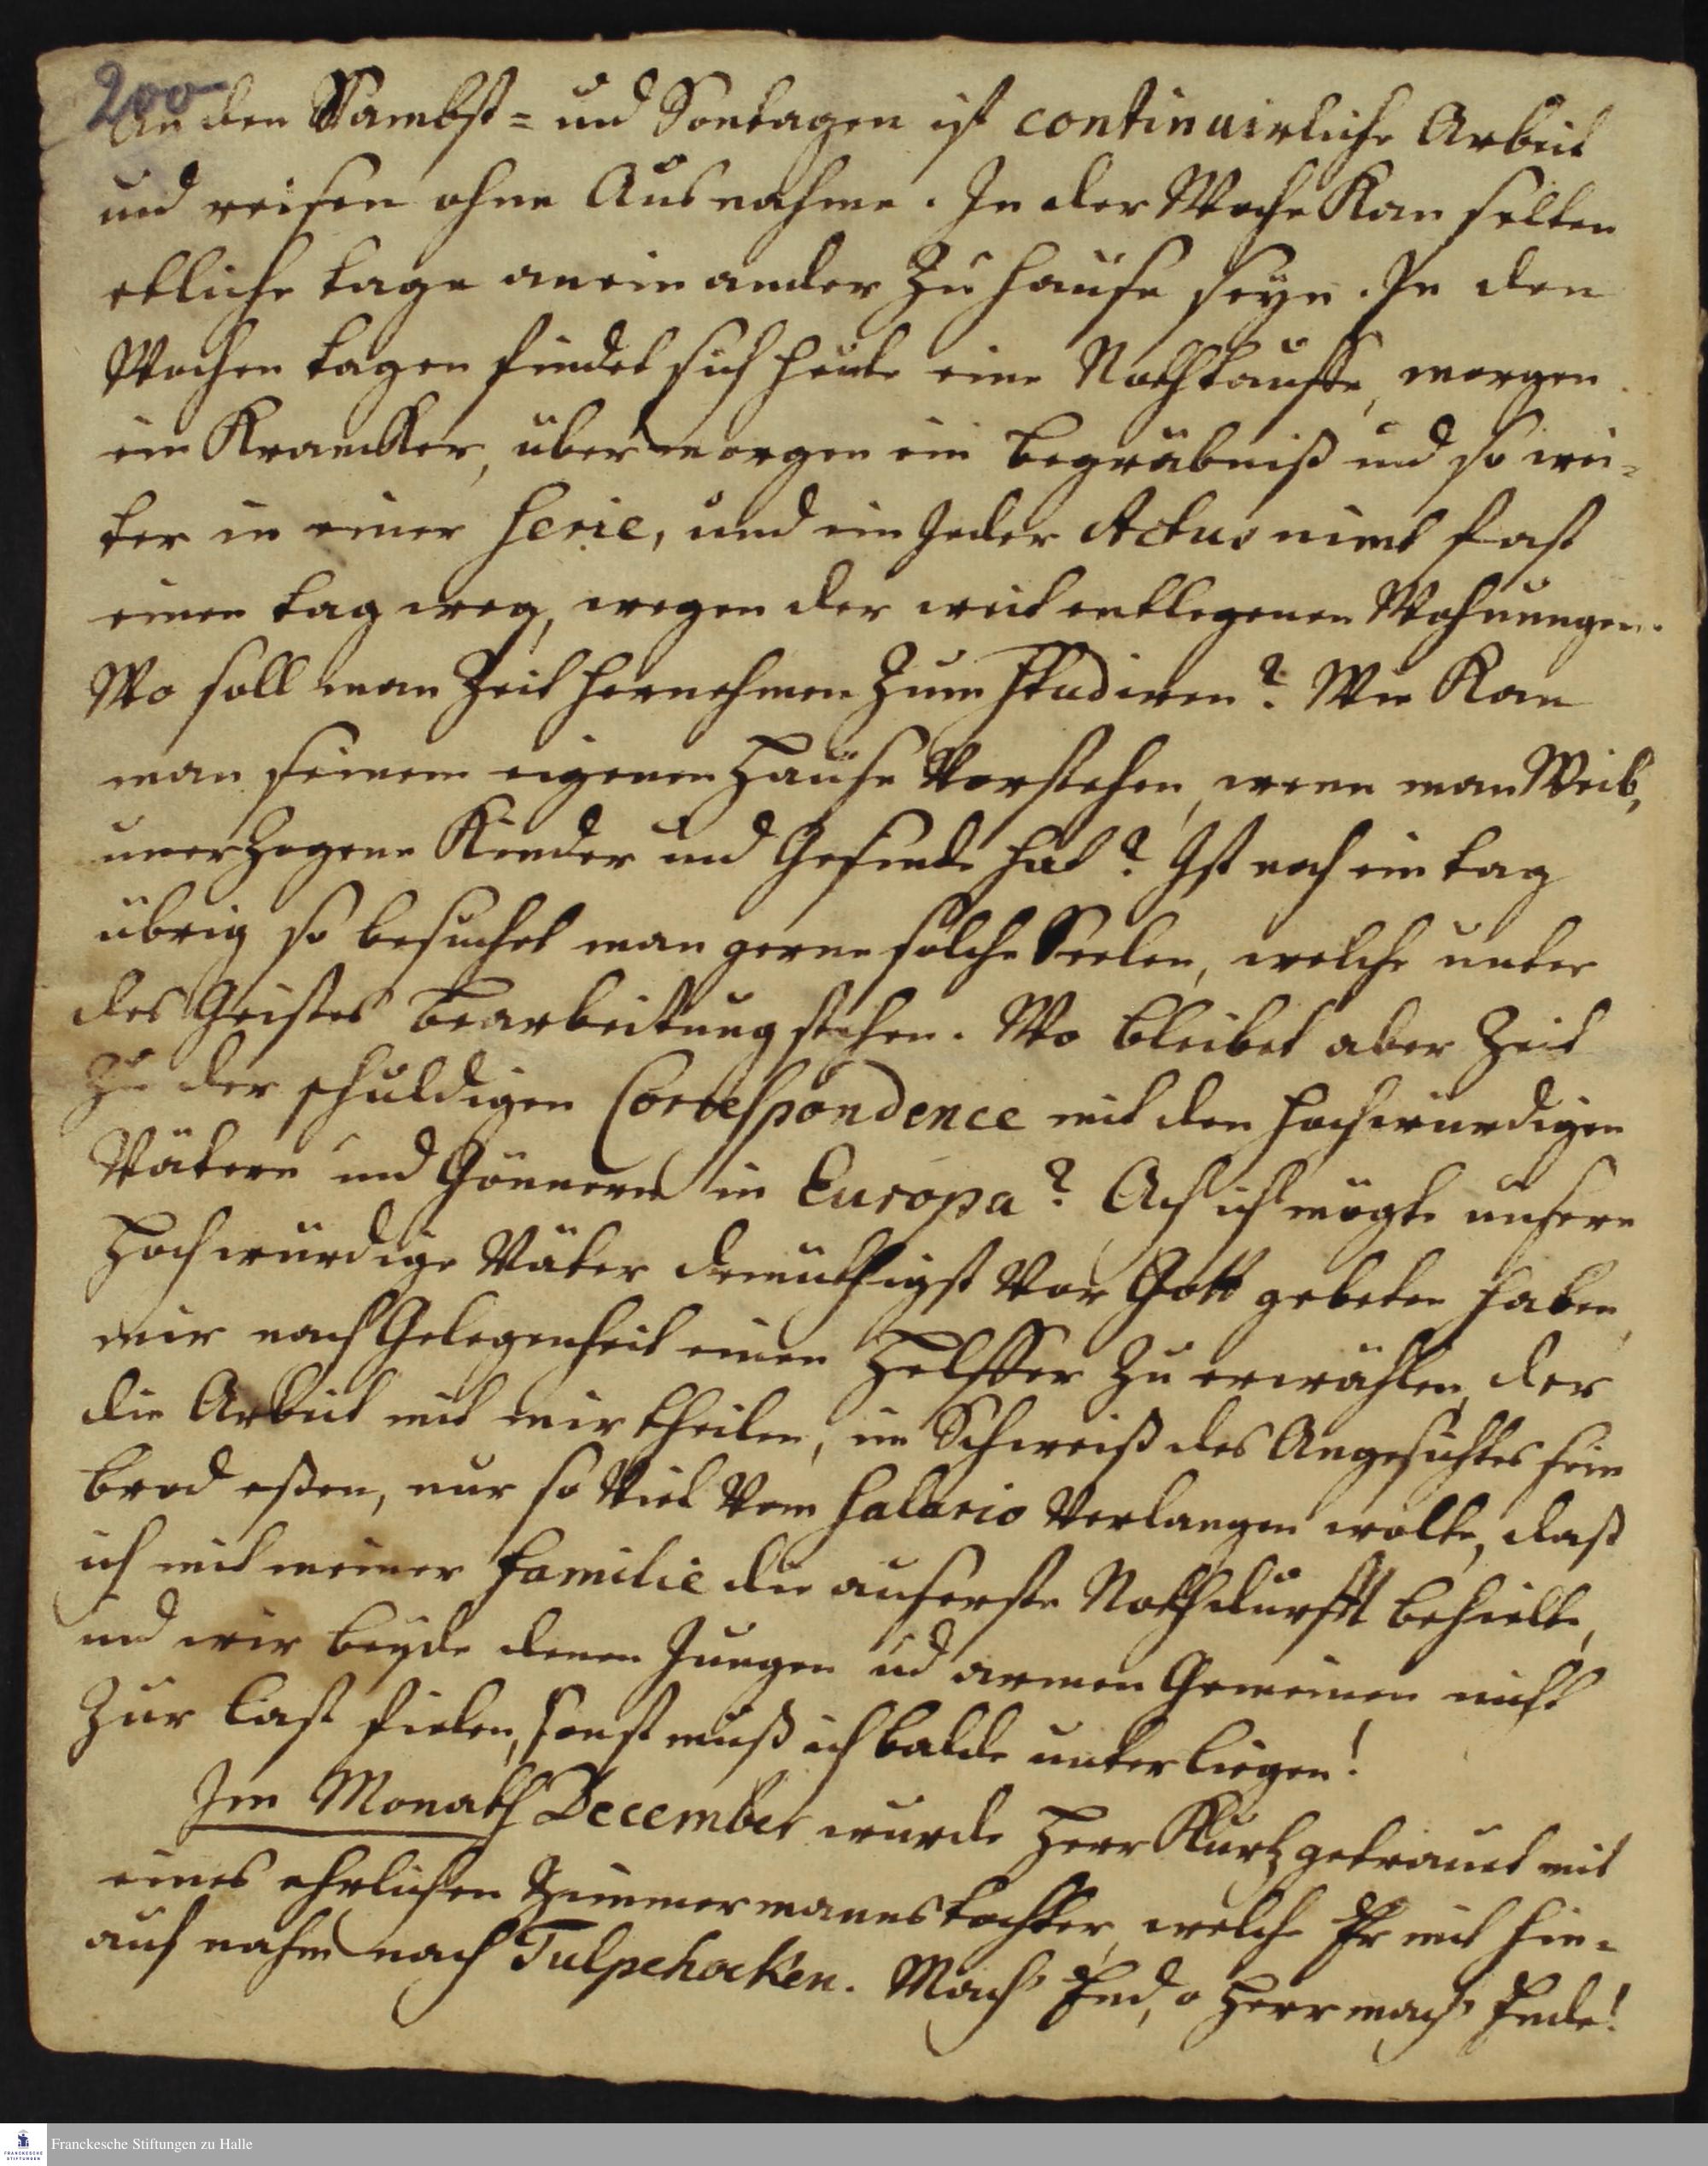 200
An den Sambst= und Sontagen ist continuirliche Arbeit
und reisen ohne Ausnahme. In der Woche Kan selten
etliche tage anein ander Zu hause seyn. In den
Wochen tagen findet sich heute eine Nothtauffe, morgen
ein Krancker, über morgen ein begräbniß und so wei=
ter in einer Serie, und ein Jeder Actus nimt fast
einen tag weg, wegen der weit entlegenen Wohnungen.
Wo soll man Zeit hernehmen Zum studiren? Wie Kan
man seinem eigenen Hause Vorstehen, wenn man Weib,
unerzogene Kinder und Gesinde hat? Ist noch ein tag
übrig so besuchet man gerne solche Seelen, welche unter
des Geistes bearbeitung stehen. Wo bleibet aber Zeit
Zu der schuldigen Correspondence mit den hochwürdigen
Vätern und Gönnern in Europa? Ach ich mögte unsere
Hochwürdige Väter demüthigst Vor Gott gebeten haben,
mir nach Gelegenheit einen Helffer Zu erwählen, der
die Arbeit mit mir theilen, im Schweiß des Angesichtes sein
brod eßen, nur so Viel Vom Salario Verlangen wolte, daß
ich mit meiner familie die auserste Nothdurfft behielte,
und wir beyde denen Jungen ud armen Gemeinen nicht
Zur last fielen, sonst muß ich balde unterliegen!
Im Monath December wurde Herr Kurtz getrauet mit
eines ehrlichen Zimmermannstochter, welche Er mit hin=
auf nahm nach Tulpehocken. Mach End, o Herr mach Ende!
Franckesche Stiftungen zu Halle
FRANCKESCHE
STIFTUNGEN